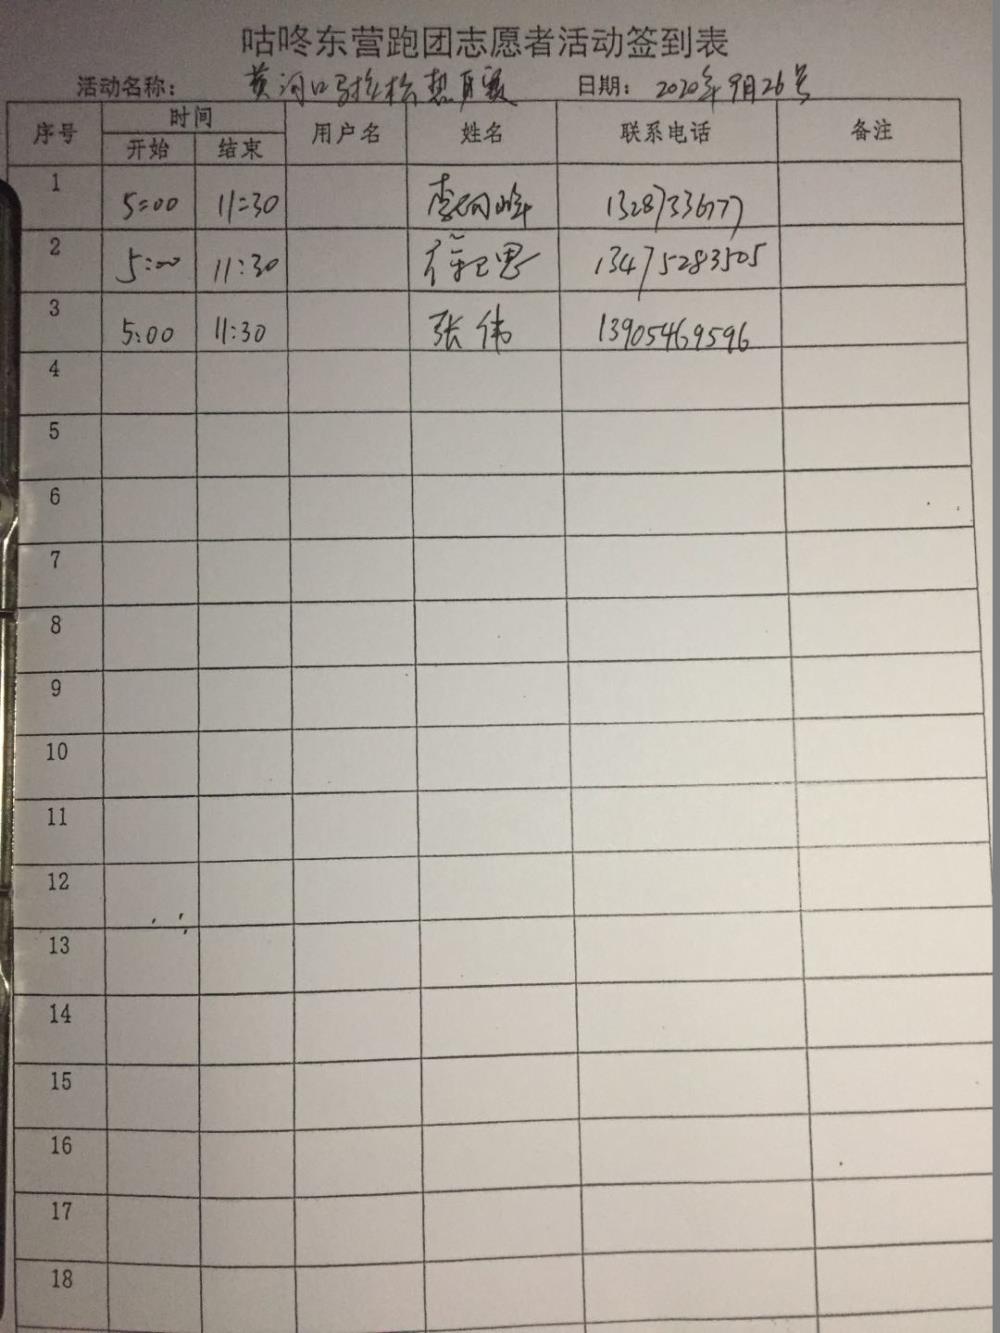 咕咚东营跑团志愿者活动签到表
活动名称： 黄河口马拉松热身赛 日期： 2020年9月26号
序号 时间 用户名 姓名 联系电话 备注
开始 结束
1 5:00 11:30 13287336777
2 5:00 11:30 13475283505
3 5:00 11:30 张伟 13905469596
4
5
6
7
8
9
10
11
12
13
14
15
16
17
18